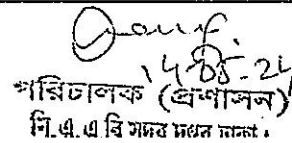 14-05-24
পরিচালক (প্রশাসন)
সি.এ.এ বি সদর দপ্তর ঢাকা।